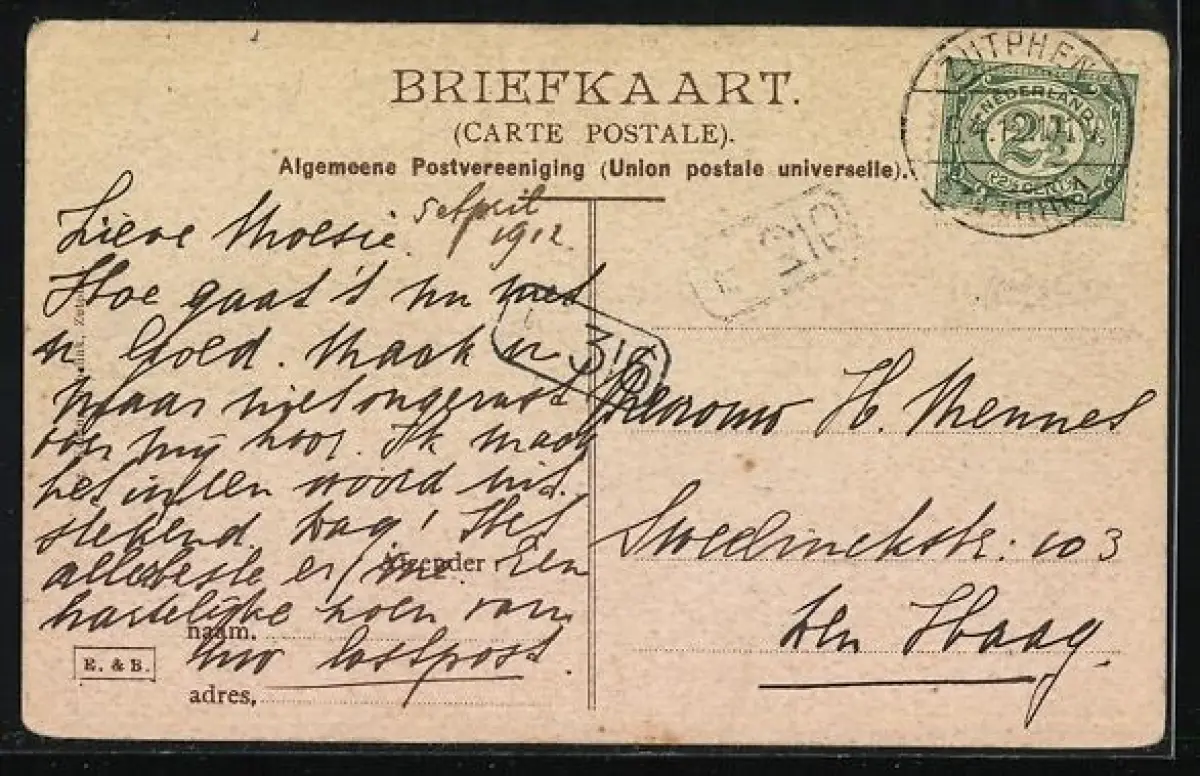 BRIEFKAART.
(CARTE POSTALE).
Algemeene Postvereeniging (Union postale universelle).
ZUTPHEN
NEDERLAND
2½
Lieve Moesie
5 april
1912
Hoe gaat 't nu met
u Goed. Maak u
maar niet ongerust
over mij hoor. Ik maak
het in een woord uit
stekend. Dag! Het
allerbeste er mee. Een
hartelijke zoen van
uw lastpost
316
Mevrouw H. Mennes
Sweelinckstr. 103
Den Haag.
Afzender
naam.
adres.
E. & B.